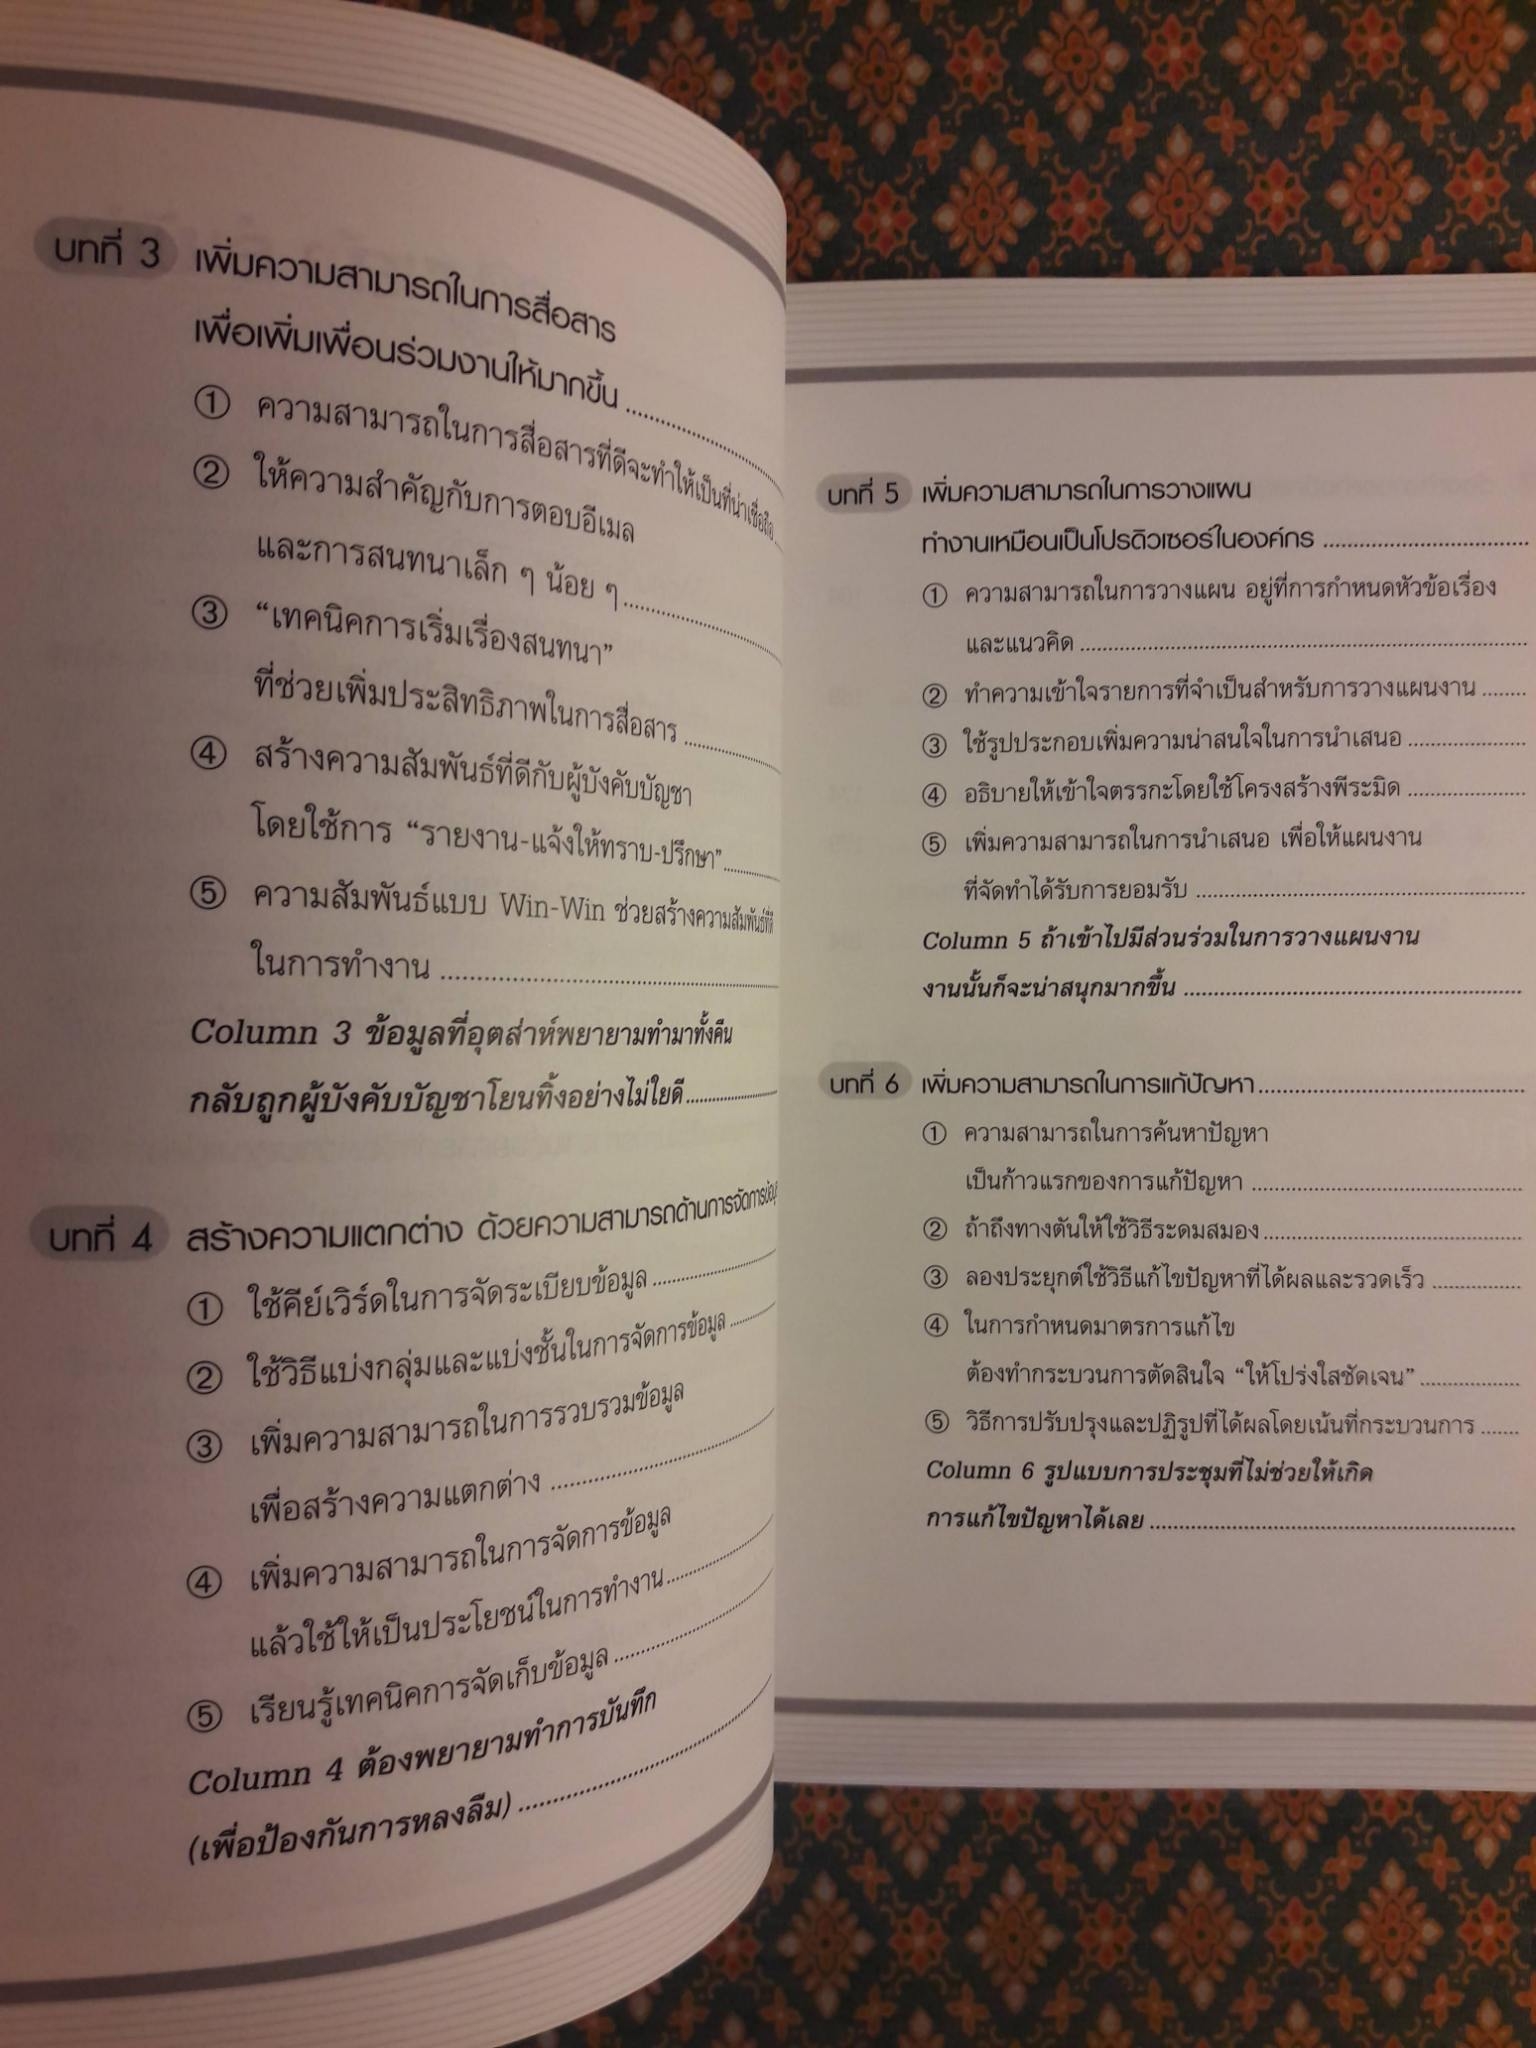 บทที่ 3 เพิ่มความสามารถในการสื่อสาร
เพื่อเพิ่มเพื่อนร่วมงานให้มากขึ้น
① ความสามารถในการสื่อสารที่ดีจะทำให้เป็นที่น่าเชื่อถือ
② ให้ความสำคัญกับการตอบอีเมล
และการสนทนาเล็ก ๆ น้อย ๆ
③ “เทคนิคการเริ่มเรื่องสนทนา”
ที่ช่วยเพิ่มประสิทธิภาพในการสื่อสาร
④ สร้างความสัมพันธ์ที่ดีกับผู้บังคับบัญชา
โดยใช้การ “รายงาน-แจ้งให้ทราบ-ปรึกษา”
⑤ ความสัมพันธ์แบบ Win-Win ช่วยสร้างความสัมพันธ์ที่ดี
ในการทำงาน
Column 3 ข้อมูลที่อุตส่าห์พยายามทำมาทั้งคืน
กลับถูกผู้บังคับบัญชาโยนทิ้งอย่างไม่ใยดี
บทที่ 4 สร้างความแตกต่าง ด้วยความสามารถด้านการจัดการ
① ใช้คีย์เวิร์ดในการจัดระเบียบข้อมูล
② ใช้วิธีแบ่งกลุ่มและแบ่งชั้นในการจัดการข้อมูล
③ เพิ่มความสามารถในการรวบรวมข้อมูล
เพื่อสร้างความแตกต่าง
④ เพิ่มความสามารถในการจัดการข้อมูล
แล้วใช้ให้เป็นประโยชน์ในการทำงาน
⑤ เรียนรู้เทคนิคการจัดเก็บข้อมูล
Column 4 ต้องพยายามทำการบันทึก
(เพื่อป้องกันการหลงลืม)
บทที่ 5 เพิ่มความสามารถในการวางแผน
ทำงานเหมือนเป็นโปรดิวเซอร์ในองค์กร
① ความสามารถในการวางแผน อยู่ที่การกำหนดหัวข้อเรื่อง
และแนวคิด
② ทำความเข้าใจรายการที่จำเป็นสำหรับการวางแผนงาน
③ ใช้รูปประกอบเพิ่มความน่าสนใจในการนำเสนอ
④ อธิบายให้เข้าใจตรรกะโดยใช้โครงสร้างพีระมิด
⑤ เพิ่มความสามารถในการนำเสนอ เพื่อให้แผนงาน
ที่จัดทำได้รับการยอมรับ
Column 5 ถ้าเข้าไปมีส่วนร่วมในการวางแผนงาน
งานนั้นก็จะน่าสนุกมากขึ้น
บทที่ 6 เพิ่มความสามารถในการแก้ปัญหา
① ความสามารถในการค้นหาปัญหา
เป็นก้าวแรกของการแก้ปัญหา
② ถ้าถึงทางตันให้ใช้วิธีระดมสมอง
③ ลองประยุกต์ใช้วิธีแก้ไขปัญหาที่ได้ผลและรวดเร็ว
④ ในการกำหนดมาตรการแก้ไข
ต้องทำกระบวนการตัดสินใจ “ให้โปร่งใสชัดเจน”
⑤ วิธีการปรับปรุงและปฏิรูปที่ได้ผลโดยเน้นที่กระบวนการ
Column 6 รูปแบบการประชุมที่ไม่ช่วยให้เกิด
การแก้ไขปัญหาได้เลย